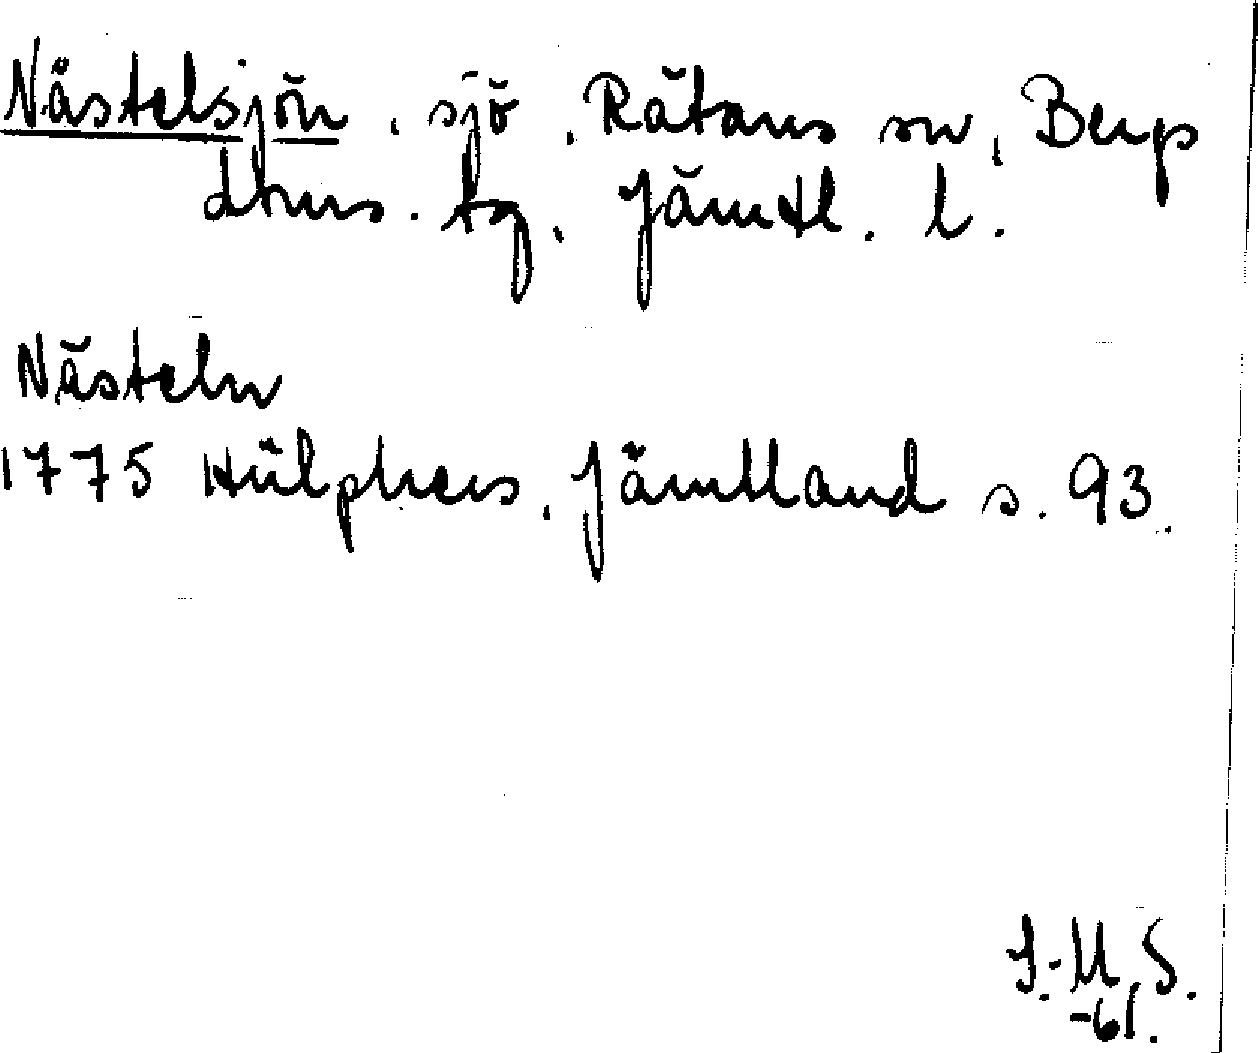 Nästelsjön, sjö, Rätans sn, Bergs
dms. tg, Jämtl. l.
Nästeln
1775 Hülphers, Jämtland s. 93.
I.-M. S.
-61.